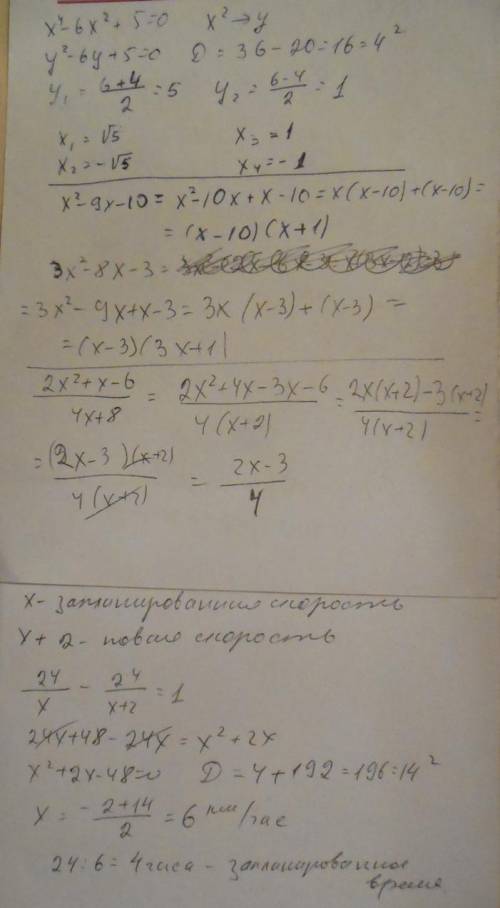 x⁴-6x²+5=0 x²→y
y²-6y+5=0 D=36-20=16=4²
y₁ = (6+4)/2 = 5 y₂ = (6-4)/2 = 1
x₁ = √5 x₃ = 1
x₂ = -√5 x₄ = -1
x²-9x-10 = x²-10x+x-10 = x(x-10)+(x-10) =
= (x-10)(x+1)
3x²-8x-3 =
= 3x²-9x+x-3 = 3x(x-3)+(x-3) =
= (x-3)(3x+1)
(2x²+x-6)/(4x+8) = (2x²+4x-3x-6)/(4(x+2)) = (2x(x+2)-3(x+2))/(4(x+2)) =
= ((2x-3)(x+2))/(4(x+2)) = (2x-3)/4
x- запланированная скорость
x+2- новая скорость
24/x - 24/(x+2) = 1
24x+48-24x = x²+2x
x²+2x-48=0 D=4+192=196=14²
x = (-2+14)/2 = 6 км/час
24:6=4 часа - запланированное
время